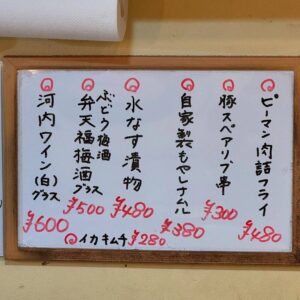 ピーマン肉詰フライ
¥480
豚スペアリブ串
¥300
自家製もやしナムル
¥380
水なす漬物
¥480
ぶどう梅酒
弁天福梅酒
グラス
¥500
河内ワイン(白)
グラス
¥600
イカキムチ ¥280